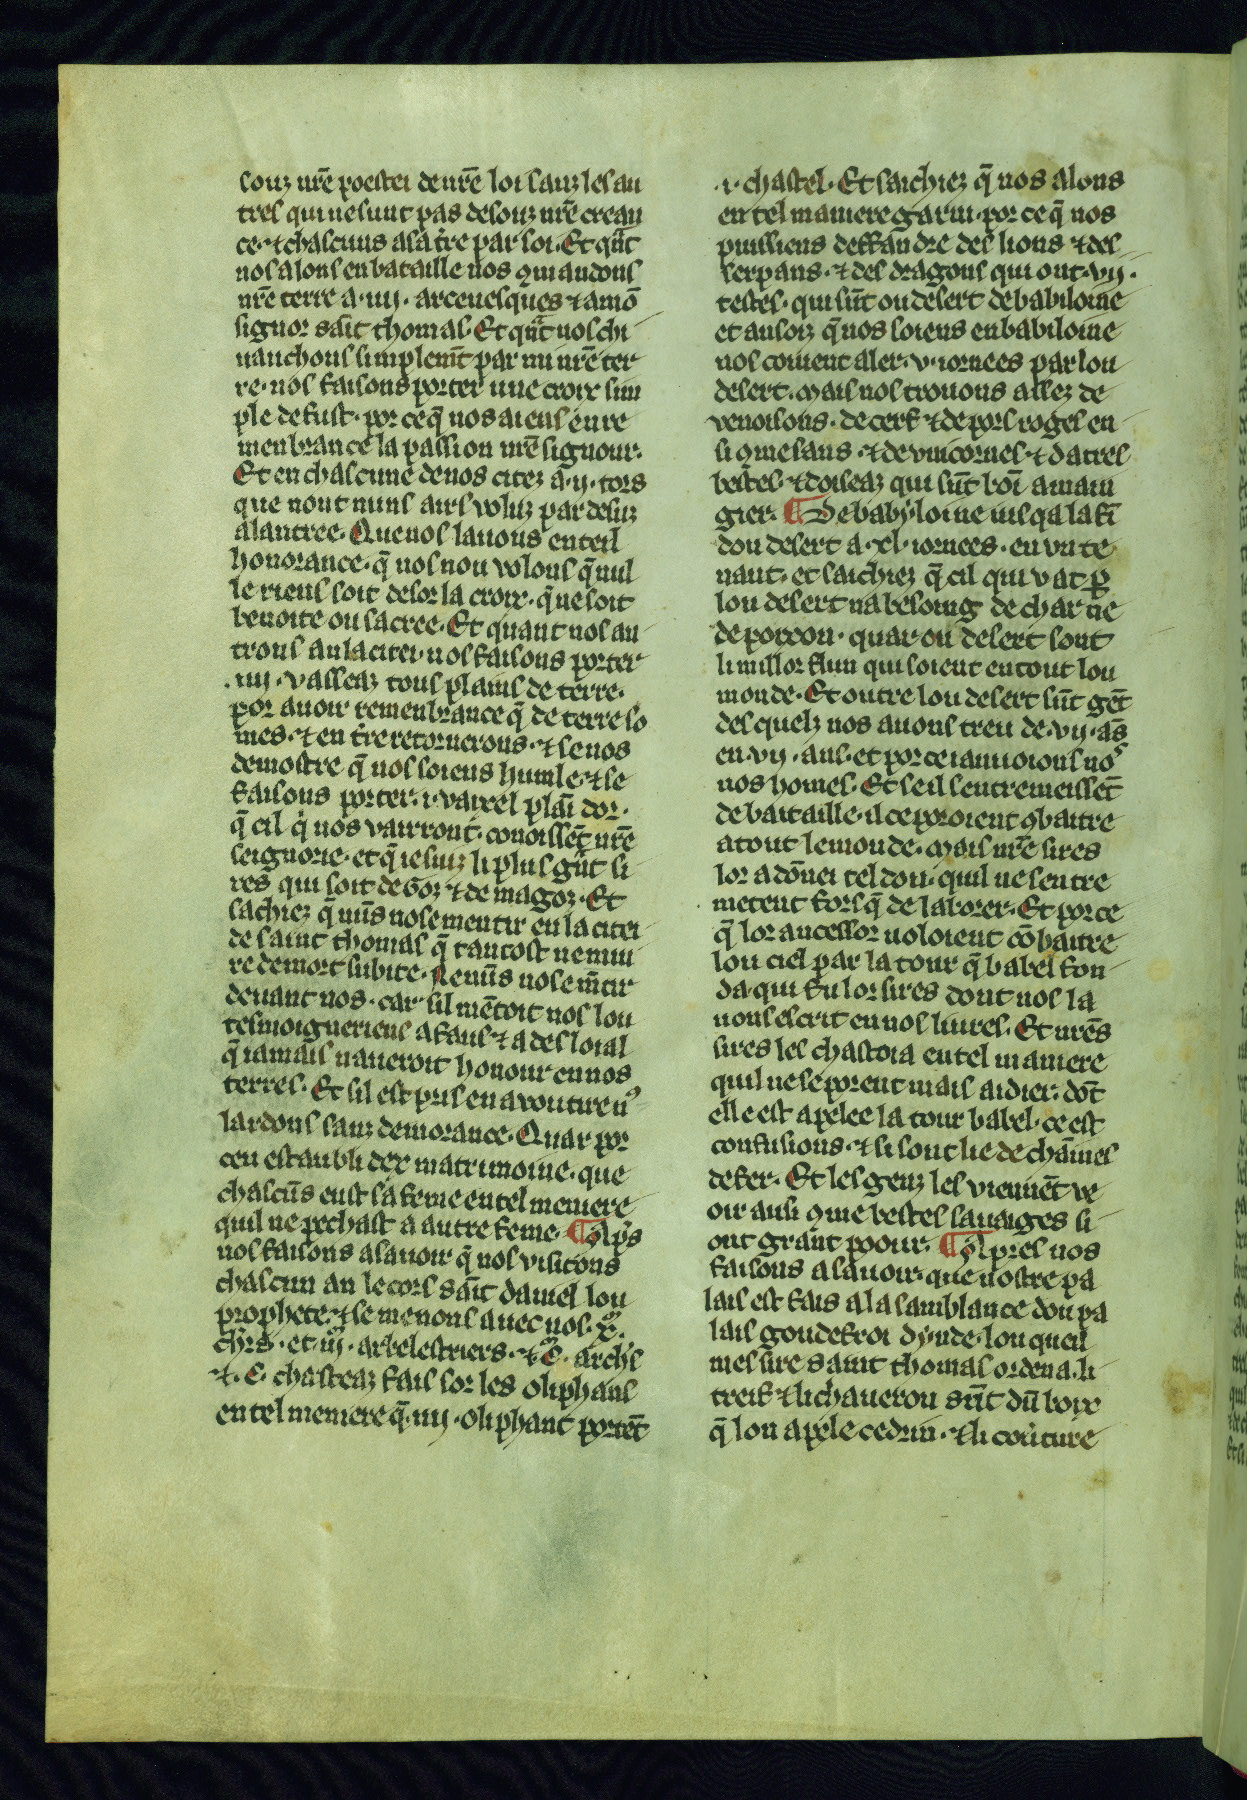 souz nr̄e poestei de nr̄e loi sanz les au
tres qui ne sunt pas desouz nr̄e crean
ce · ⁊ chascuns a sa tr̄e par soi · Et qn̄t
nos alons en bataille nos 9mandons
nr̄e terre a · iiij · arcevesques ⁊ a mō
signor sāit thomas · Et qn̄t nos che
vauchons simplemēt par mi nr̄e ter
re · nos faisons porter une croix sim
ple de fust · por ce q̄ nos aiens en re
menbrance la passion nr̄e signour ·
Et en chascune de nos citez a · ij · tors
que nont nuns airs voluz par desuz
a lantree · Que nos lavons en teil
honorance · q̄ nos nou volons q̄ nul
le riens soit desor la croix · q̄ ne soit
benoite ou sacree · Et quant nos an
trons an la citei · nos faisons porter
· iiij · vasseaz tous plains de terre ·
por avoir remenbrance q̄ de terre so
mes · ⁊ en tr̄e retornerons · ⁊ se nos
demostre q̄ nos soiens humle · ⁊ se
faisons porter · i · vaixel plāi dor ·
q̄ cil q̇ nos vairront · conoissēt nr̄e
seignorie · et q̄ ie suiz li plus gn̄t si
res qui soit de Goz ⁊ de magoz · Et
sachiez q̄ nūs nose mentir en la citei
de saint thomas q̄ tantost ne mui
re de mort subite · Ne nūs nose mētir
devant nos · car sil mētoit nos lou
tesmoigneriens a faus ⁊ a desloial
q̄ iamais naveroit honour en nos
terres · Et sil est pris en avoutire n⁹
lardons sanz demorance · Quar por
ceu estaubli dex matrimoine · que
chascūs eust sa feme en tel meniere
quil ne pechast a autre feme · ¶ Ap̄s
nos faisons a savoir q̄ nos visitons
chascun an le cors sāit daniel lou
prophete · ⁊ se menons avec nos · x ·
chr̄s · et · iij · arbelestriers · ⁊ · C · archs
⁊ · C · chasteaz fais sor les oliphans
en tel meniere q̄ · iiij · oliphant portēt
· i · chastel · Et saichiez q̄ nos alons
en tel maniere garni · por ce q̄ nos
puissiens deffandre des lions ⁊ des
serpans · ⁊ des dragons qui ont · vij ·
testes · qui sūt ou desert de babiloine
et ansoiz q̄ nos soiens en babiloine
nos covient aler · v · iornees par lou
desert · mais nos trovons assez de
venoisons · de cerf ⁊ de pors roges en
si 9me sans · ⁊ de unicornes · ⁊ datres
bestes · ⁊ doiseaz qui sūt boī a main
gier · ¶ De babyloine iusqa la fī
dou desert a · xl · iornees · en un te
nant · et saichiez q̄ cil qui vat p̱
lou desert na besoing de char ne
de poixon · quar ou desert sont
li millor flun qui soient en tout lou
monde · Et outre lou desert sūt gēt
des quelz nos avons treu de · vij · ās
en · vij · ans · et por ce i anvoions no⁹
nos homes · Et se il sentremeissēt
de bataille · il ce poroient 9batre
a tout le monde · mais nr̄e sires
lor a dōnei tel don · quil ne sentre
metent fors q̄ de laborer · Et por ce
q̄ lor ancessor voloient cōbatre
lou ciel par la tour q̄ babel fon
da · qui fu lor sires dont nos la
vons escrit en nos livres · Et nrēs
sires les chastoia en tel maniere
quil ne se porent mais aidier · dōt
elle est apelee la tour babel · ce est
confusions · ⁊ si sont lie de chāines
de fer · Et les genz les viennēt ve
oir ausi 9me bestes savaiges si
ont grant poour · ¶ Apres nos
faisons a savoir · que nostre pa
lais est fais a la samblance dou pa
lais goudefroi dynde · lou queil
messire saint thomas ordena · li
treif ⁊ li chaveron sūt dū boix
q̄ lon apele cedrin · ⁊ li coṽture